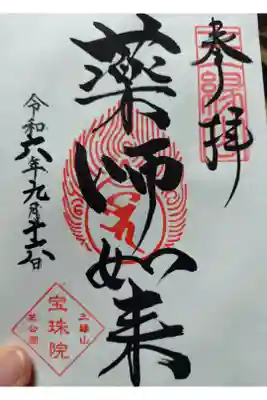 奉拝
薬師如来
令和六年九月十六日
三縁山
宝珠院
芝公園